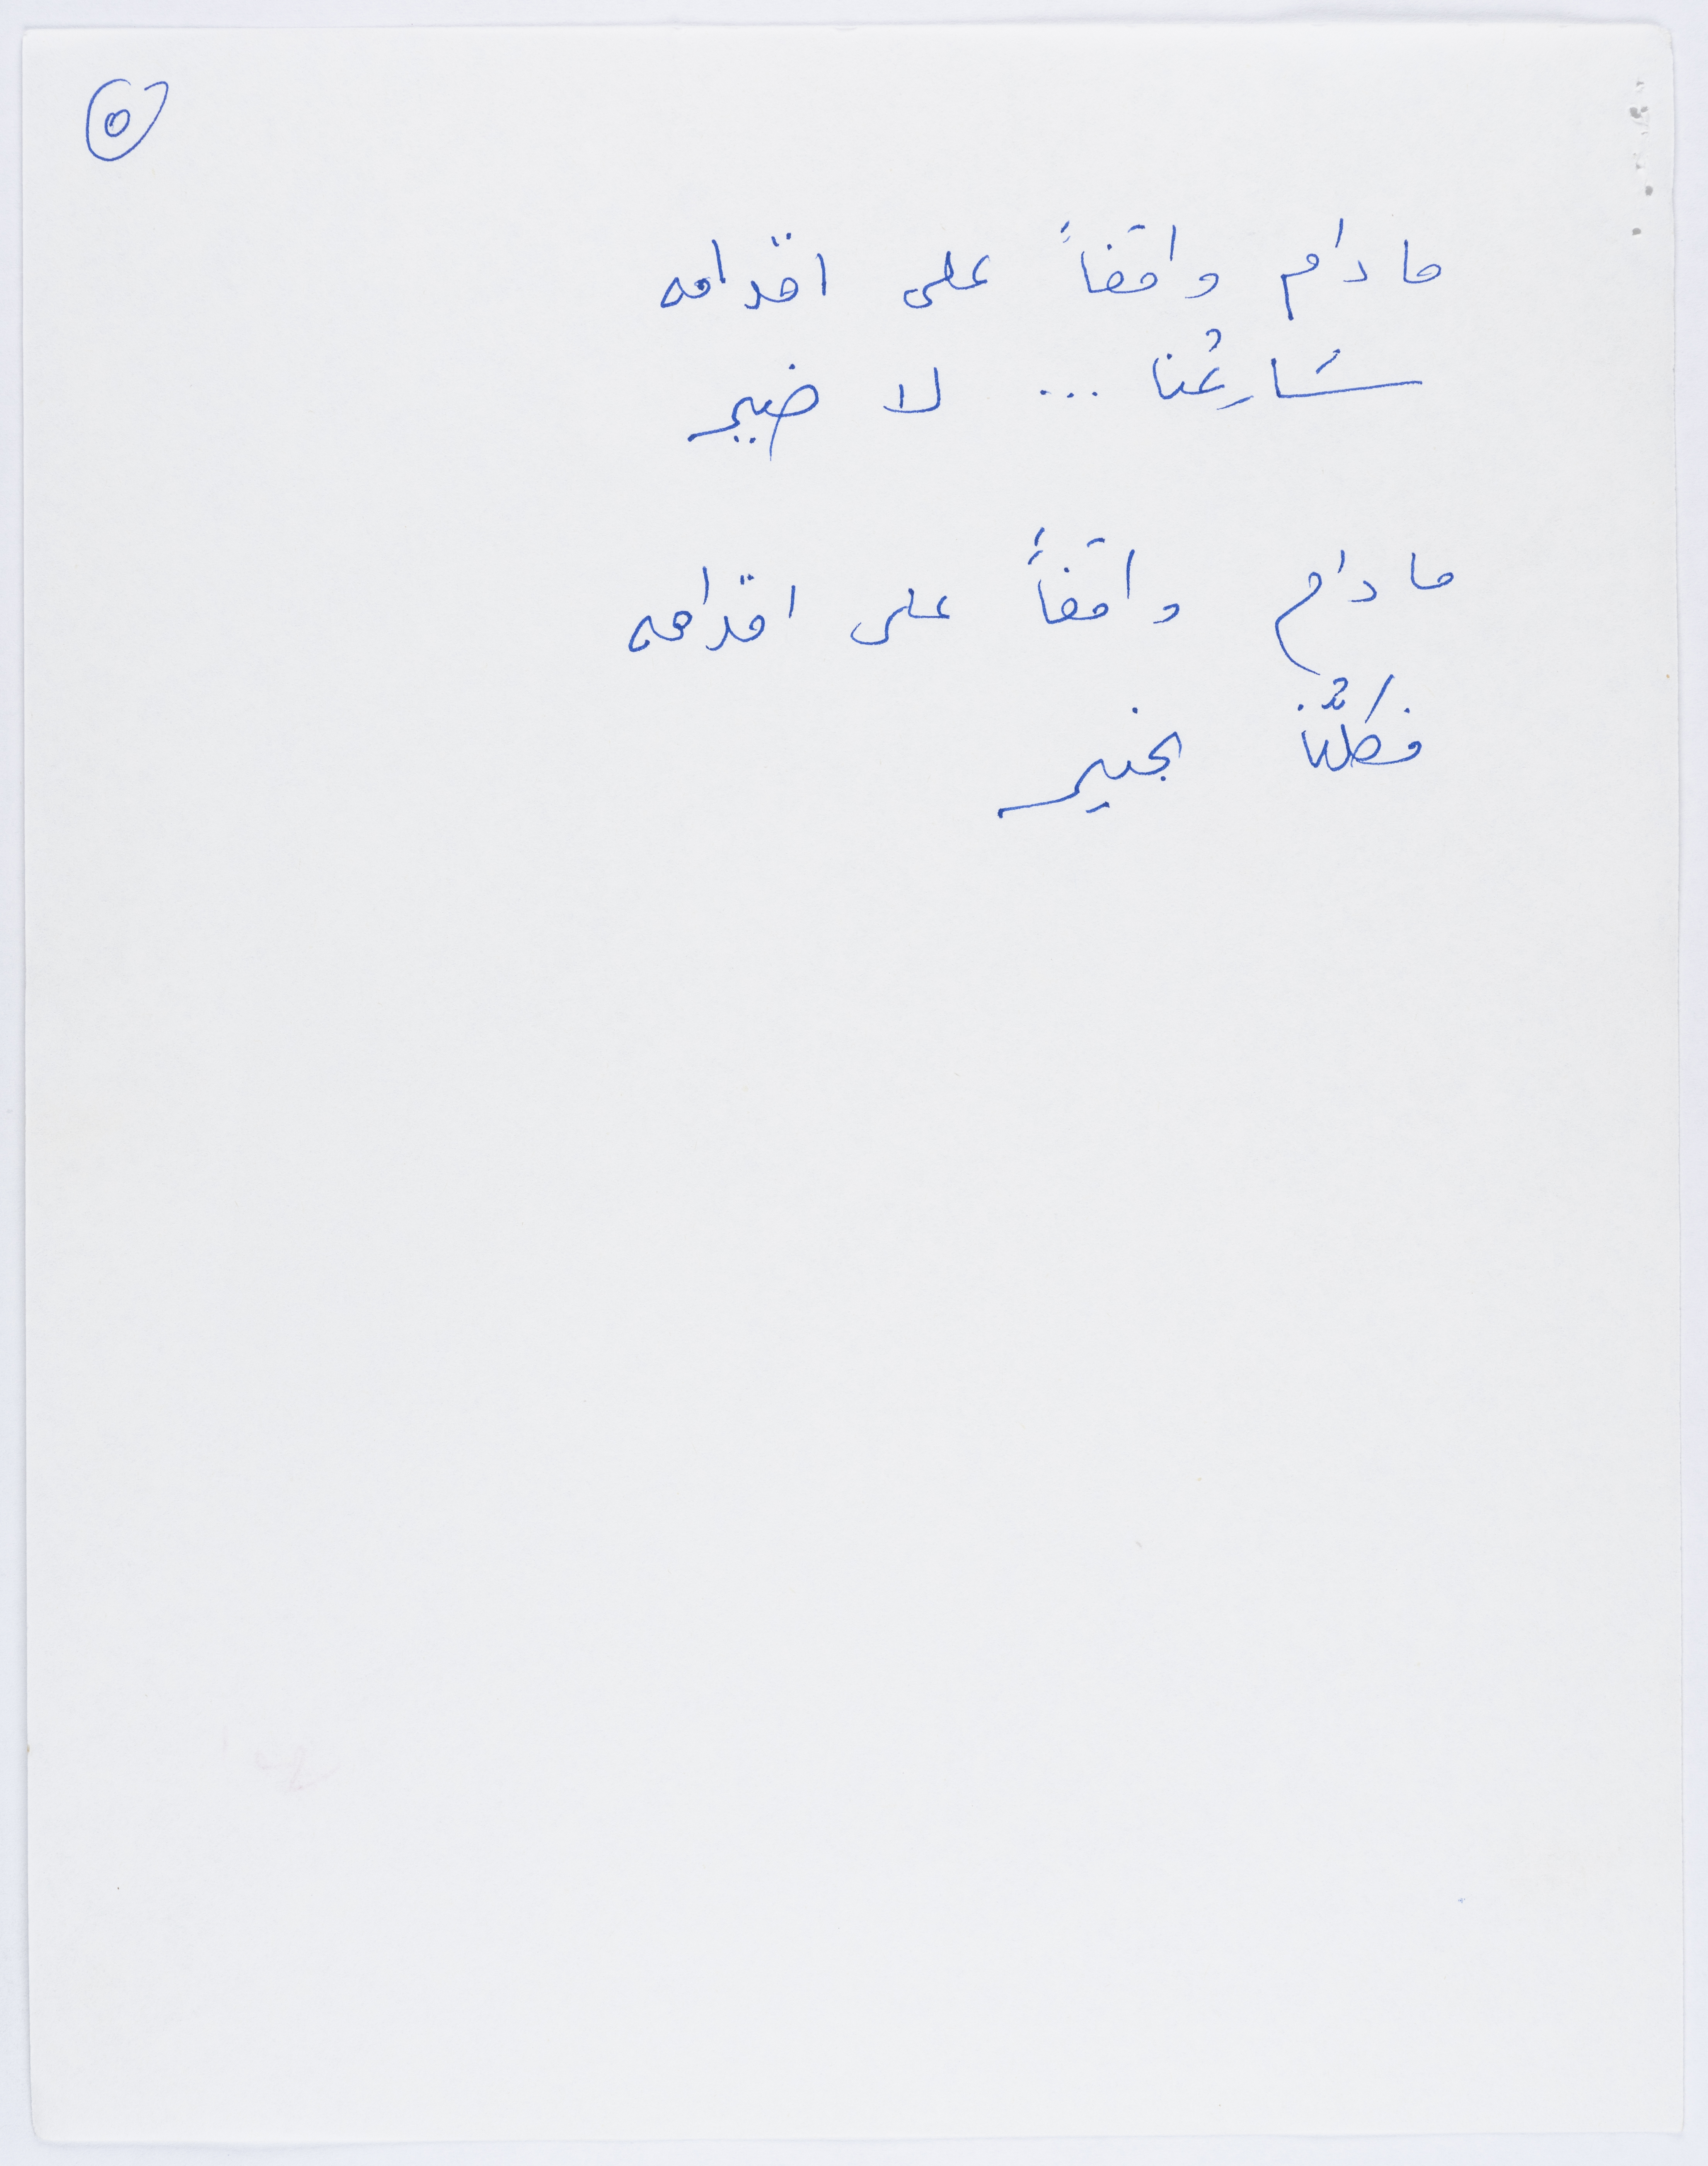 ٥
ما دام واقفاً على اقدامه
شَارِعُنا ... لا ضير
ما دام واقفاً على اقدامه
فكلُّنا بخير